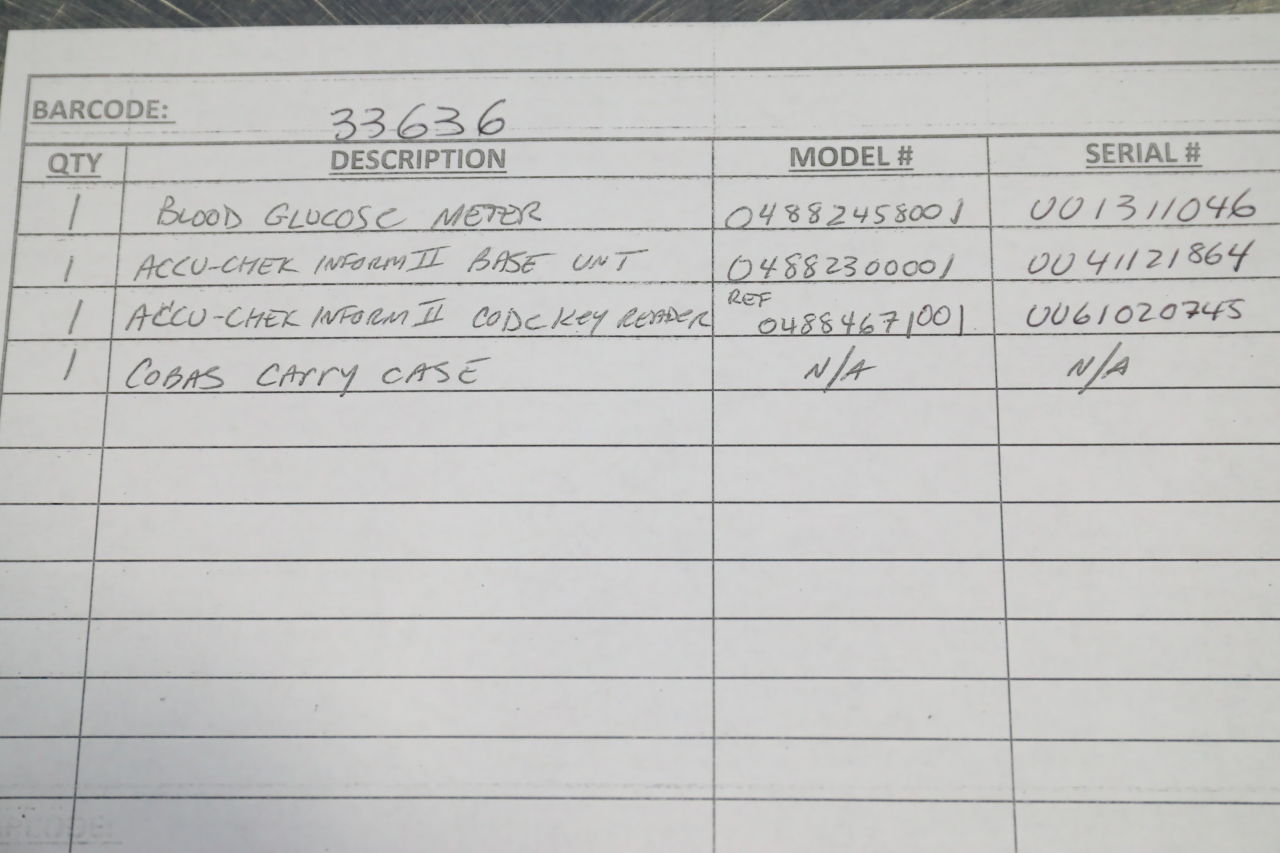 BARCODE: 33636
QTY DESCRIPTION MODEL # SERIAL #
1 BLOOD GLUCOSE METER 04882458001 UU1311046
1 ACCU-CHEK INFORM II BASE UNT 04882300001 UU41121864
1 ACCU-CHEK INFORM II CODE KEY READER REF 04884671001 UU61020745
1 COBAS CARRY CASE N/A N/A
BARCODE: